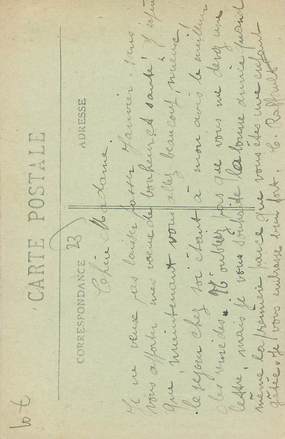 CARTE POSTALE
CORRESPONDANCE
ADRESSE
23
Chère Madame.
Je ne veux pas laisser passer Janvier sans
vous apporter mes vœux de bonheur et santé! J'espère
que maintenant vous allez beaucoup mieux
le séjour chez soi étant à mon avis le meilleur
des remèdes. N'oubliez pas que vous me devez une
lettre, mais je vous souhaite la bonne année quand
même la première parce que vous êtes une enfant
gâtée. Je vous embrasse bien fort. C. Raffault